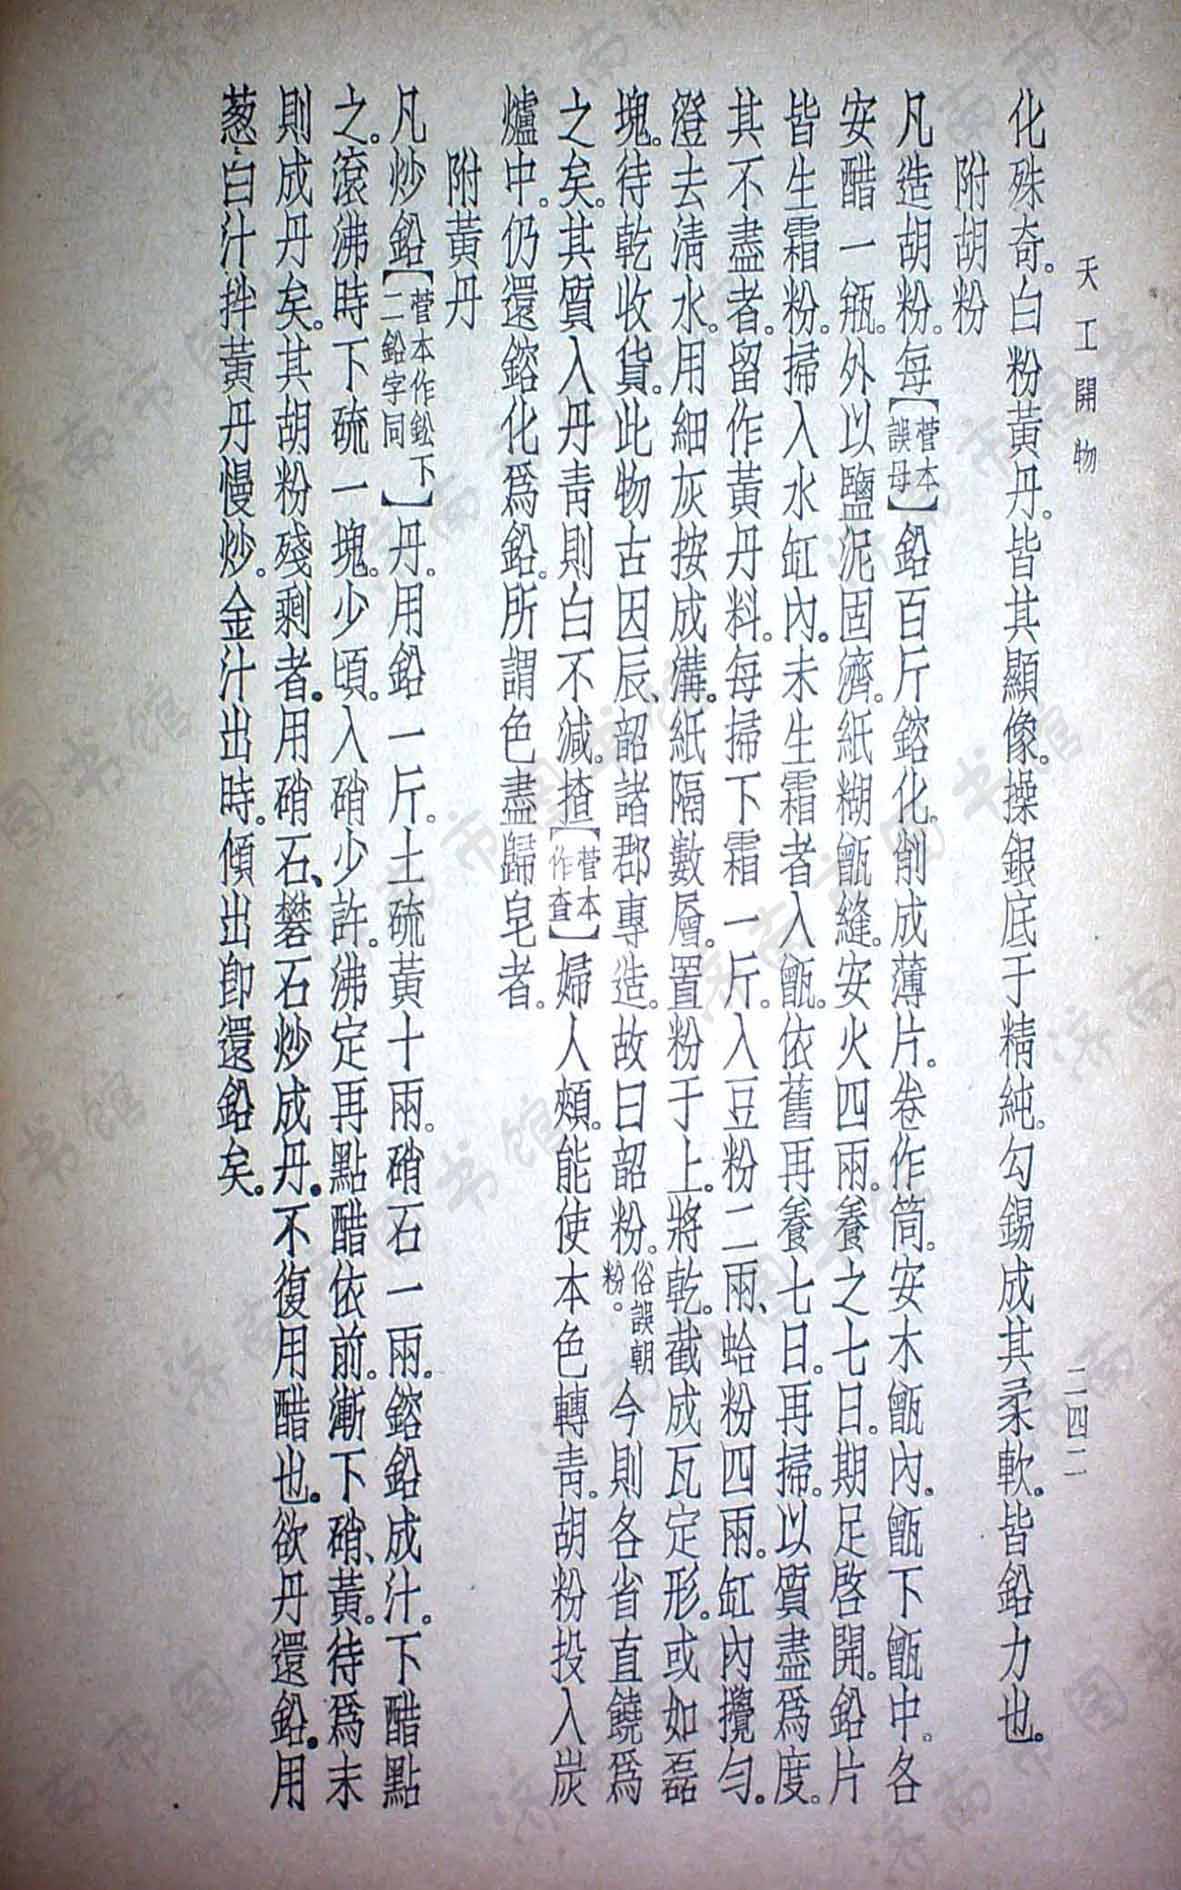 天工開物
二四二
化殊奇。白粉黃丹。皆其顯像。操銀底于精純。勾錫成其柔軟。皆鉛力也。
附胡粉
凡造胡粉。每【菅本誤母】鉛百斤鎔化。削成薄片。卷作筒。安木甑內。甑下甑中。各
安醋一瓶。外以鹽泥固濟。紙糊甑縫。安火四兩。養之七日。期足啓開。鉛片
皆生霜粉。掃入水缸內。未生霜者入甑。依舊再養七日。再掃。以質盡爲度。
其不盡者。留作黃丹料。每掃下霜一斤。入豆粉二兩、蛤粉四兩。缸內攪勻。
澄去清水。用細灰按成溝。紙隔數層。置粉于上。將乾。截成瓦定形。或如磊
塊。待乾收貨。此物古因辰、韶諸郡專造。故曰韶粉。俗誤朝粉。今則各省直饒爲
之矣。其質入丹青則白不減。揸【菅本作查】婦人頰。能使本色轉青。胡粉投入炭
爐中。仍還鎔化爲鉛。所謂色盡歸皂者。
附黃丹
凡炒鉛【菅本作鈆下二鉛字同】丹。用鉛一斤。土硫黃十兩。硝石一兩。鎔鉛成汁。下醋點
之。滾沸時下硫一塊。少頃。入硝少許。沸定再點醋依前。漸下硝、黃。待爲末
則成丹矣。其胡粉殘剩者。用硝石、礬石炒成丹。不復用醋也。欲丹還鉛。用
葱白汁拌黃丹慢炒。金汁出時。傾出卽還鉛矣。